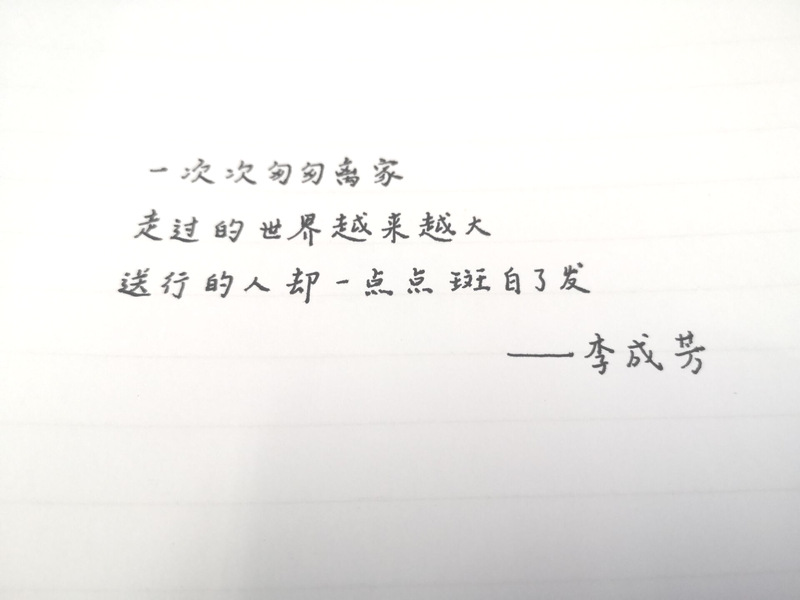 一次次匆匆离家
走过的世界越来越大
送行的人却一点点斑白了发
——李成芳